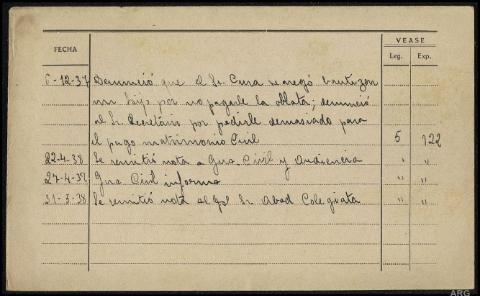 VEASE
FECHA Leg. Exp.
6-12-37 Denunció que el Sr. Cura se negó bautizar
un hijo por no pagarle la oblata; denunció
al Sr Secretario por pedirle demasiado para
el pago matrimonio Civil 5 122
22-4-38 Se remitió nota a Gno. Civil y Audiencia " "
27-4-38 Gno Civil informa " "
31-3-38 Se remitió nota al Sr Abad Colegiata " "
ARG